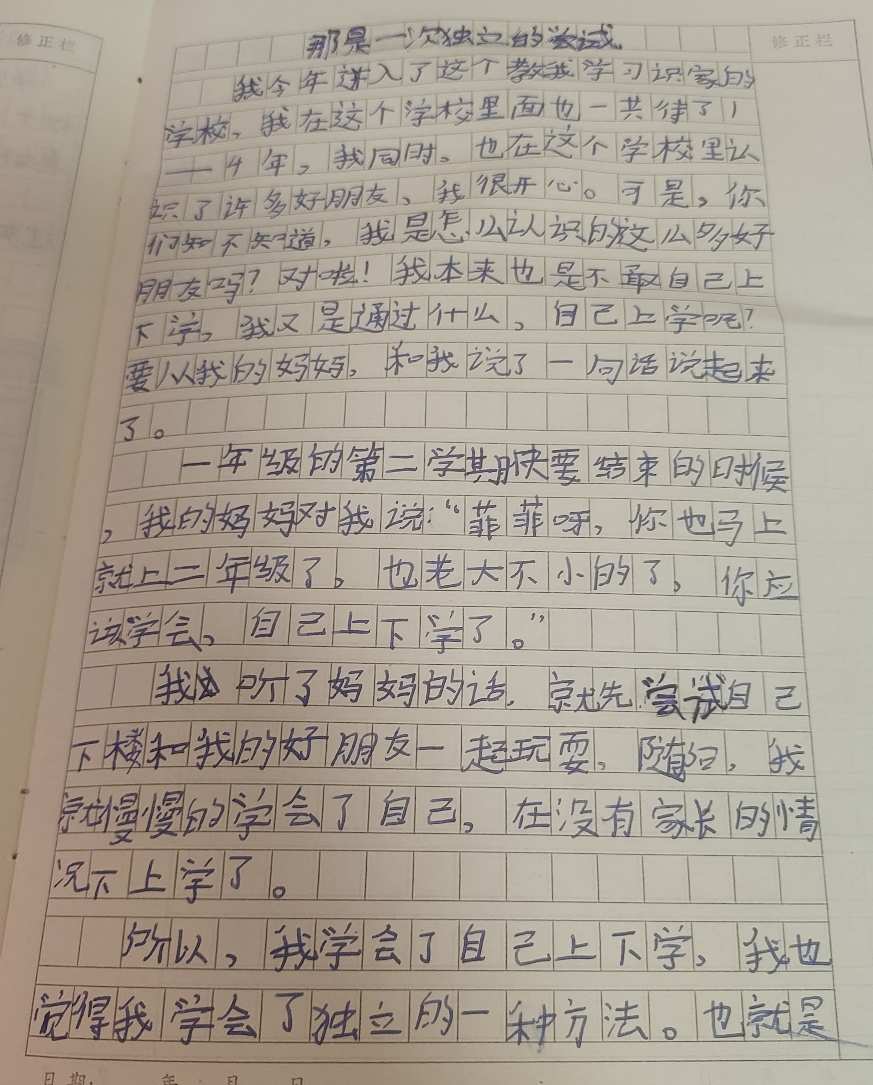 修正栏
修正栏
那是一次独立的尝试
我今年进入了这个教我学习识家的
学校，我在这个学校里面也一共待了1
——4年，我同时。也在这个学校里认
识了许多好朋友，我很开心。可是，你
们知不知道，我是怎么认识的这么多好
朋友吗？对啦！我本来也是不敢自己上
下学，我又是通过什么，自己上学呢？
要从我的妈妈，和我说了一句话说起来
了。
一年级的第二学期快要结束的时候
，我的妈妈对我说：“菲菲呀，你也马上
就上二年级了，也老大不小的了，你应
该学会，自己上下学了。”
我听了妈妈的话，就先尝试自己
下楼和我的好朋友一起玩耍，随后，我
就慢慢的学会了自己，在没有家长的情
况下上学了。
所以，我学会了自己上下学，我也
觉得我学会了独立的一种方法。也就是
日期： 年 月 日